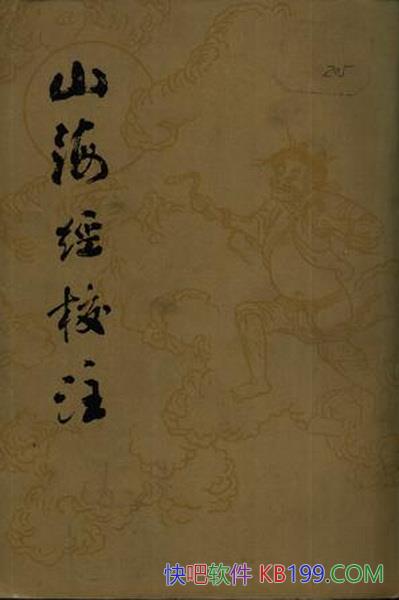 山海经校注
205
快吧软件 KB199.COM